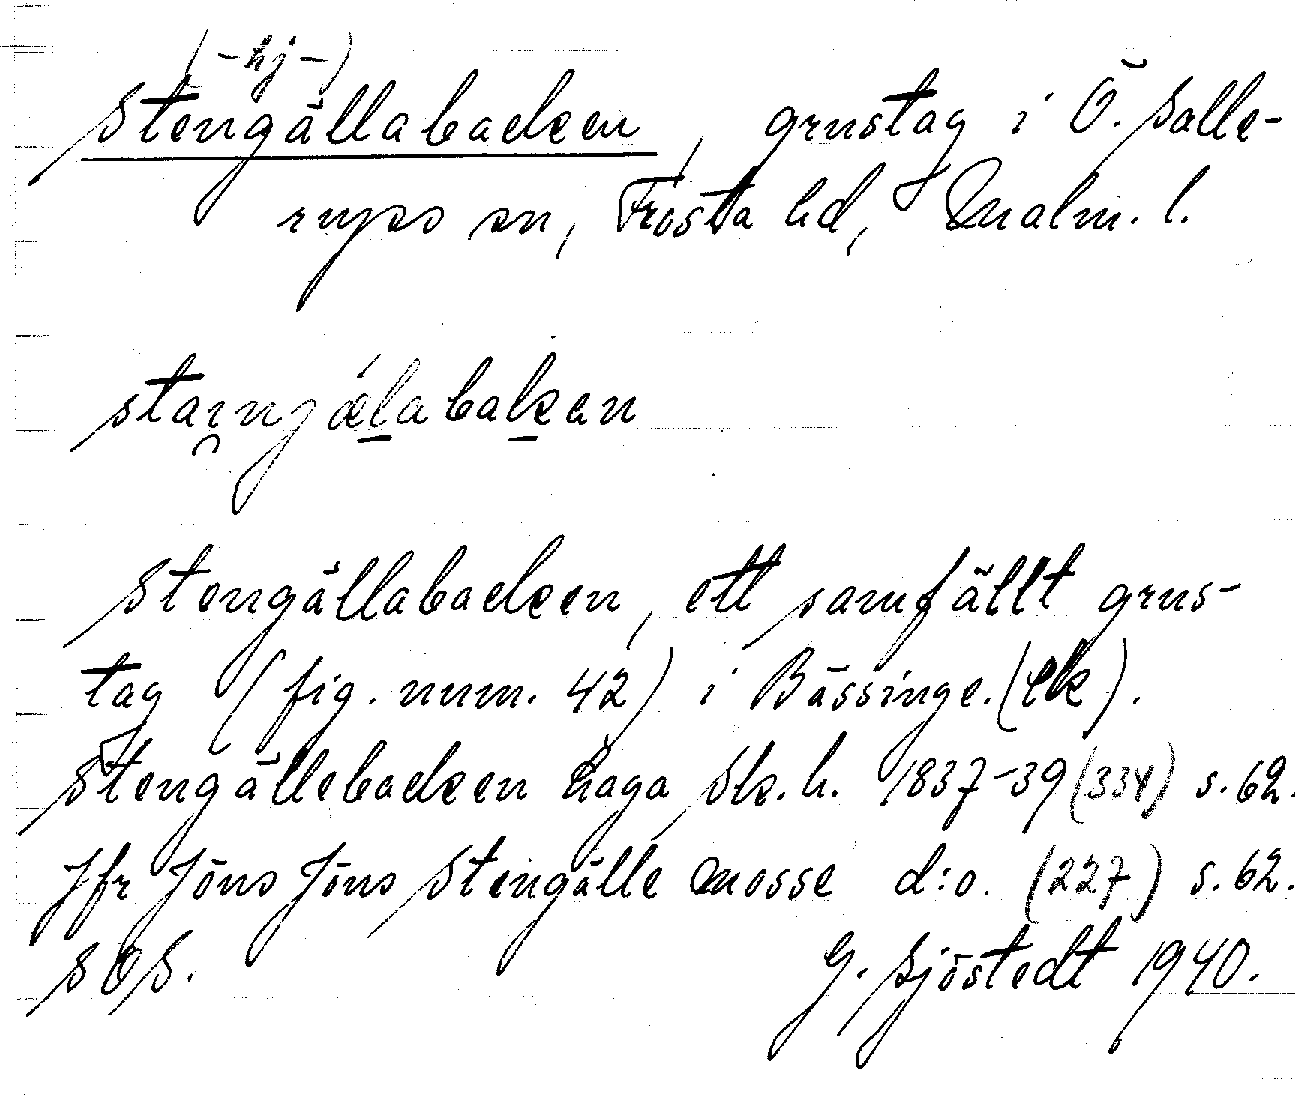 (-hj-)
Stengällabacken, grustag i Ö. Salle-
rups sn, Frosta hd, Malm. l.
staingǽlabakan
Stengällabacken, ett samfällt grus-
tag (fig. num. 42) i Bässinge. (Ek).
Stengällebacken haga Sk. h. 1837-39 (334) s. 62.
Jfr Jöns Jöns Stengälle mosse d:o. (227) s. 62.
SOS. G. Sjöstedt 1940.